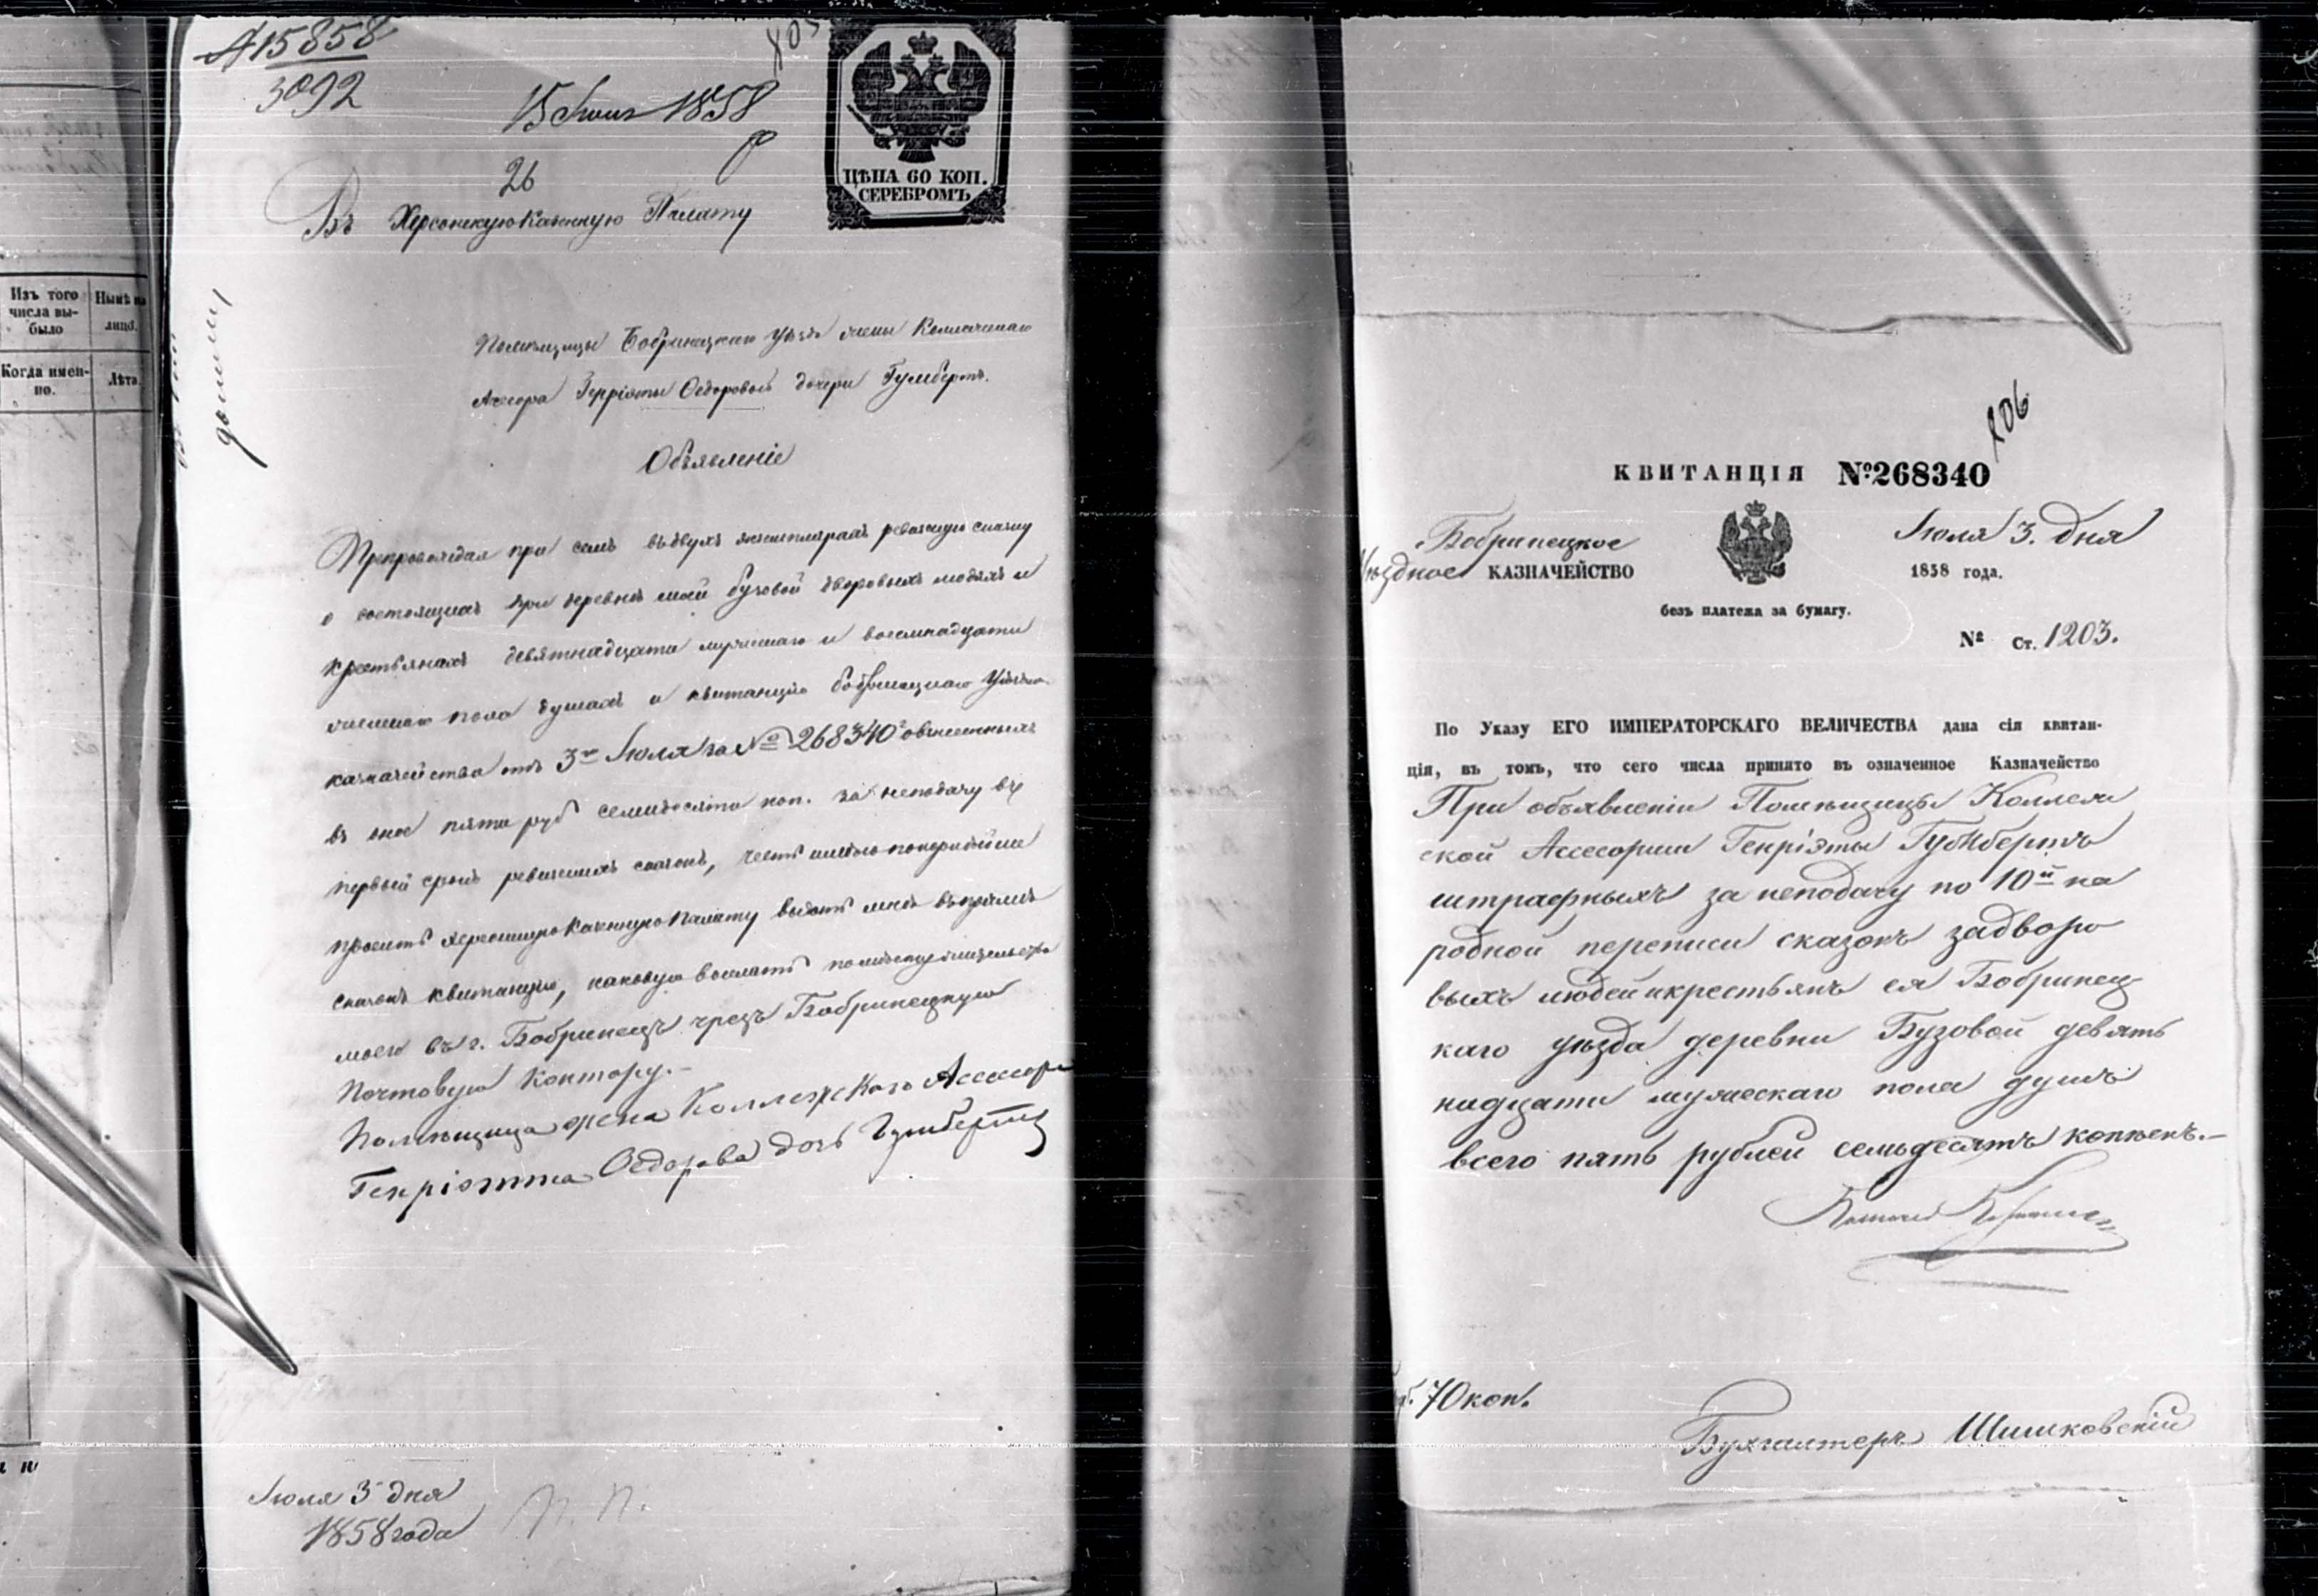 Изъ того
числа вы-
было
Нынѣ на
лицо.
Когда имен-
но.
Лѣта.
15858
3092
15 Июля 1858
26
805
ЦѢНА 60 КОП.
СЕРЕБРОМЪ
Въ Херсонскую Казенную Палату
Помѣщицы Бобринецкаго Уѣзда жены Коллежскаго
Асесора Генріэты Ѳедоровой дочери Гумбертъ.
Объявленіе
Препровождая при семъ въ двухъ экземплярахъ ревизскую сказку
о состоящихъ при деревнѣ моей Бузовой дворовыхъ людяхъ и
крестьянахъ девятнадцати мужскаго и восемнадцати
женскаго пола душахъ и квитанцію Бобринецкаго Уѣзднаго
казначейства отъ 3го Июля за № 268340 о внесенныхъ
въ оное пяти руб семидесяти коп. за неподачу въ
первый срокъ ревизскихъ сказокъ, честь имѣю покорнѣйше
просить Херсонскую Казенную Палату выдать мнѣ въ пріемѣ
сказокъ квитанцію, каковую выслать по мѣсту жительства
моего въ г. Бобринецъ чрезъ Бобринецкую
Почтовую Контору.-
Помѣщица жена Коллежскаго Асесора
Генріэтта Ѳедорова дочь Гумбертъ
Июля 3 дня
1858 года
806
КВИТАНЦІЯ №268340
Бобринецкое
Уѣздное КАЗНАЧЕЙСТВО
Июля 3. дня
1858 года.
безъ платежа за бумагу.
№ Ст. 1203.
По Указу ЕГО ИМПЕРАТОРСКАГО ВЕЛИЧЕСТВА дана сія квитан-
ція, въ томъ, что сего числа принято въ означенное Казначейство
При объявленіи Помѣщицы Коллеж
ской Ассесорши Генріэты Гумбертъ
штрафныхъ за неподачу по 10й на
родной переписи сказокъ за дворо
выхъ людей и крестьянъ ея Бобринец
каго уѣзда деревни Бузовой девять
надцати мужескаго пола душъ
всего пять рублей семьдесятъ копѣекъ.-
70 коп.
Бухгалтеръ Шишковскій